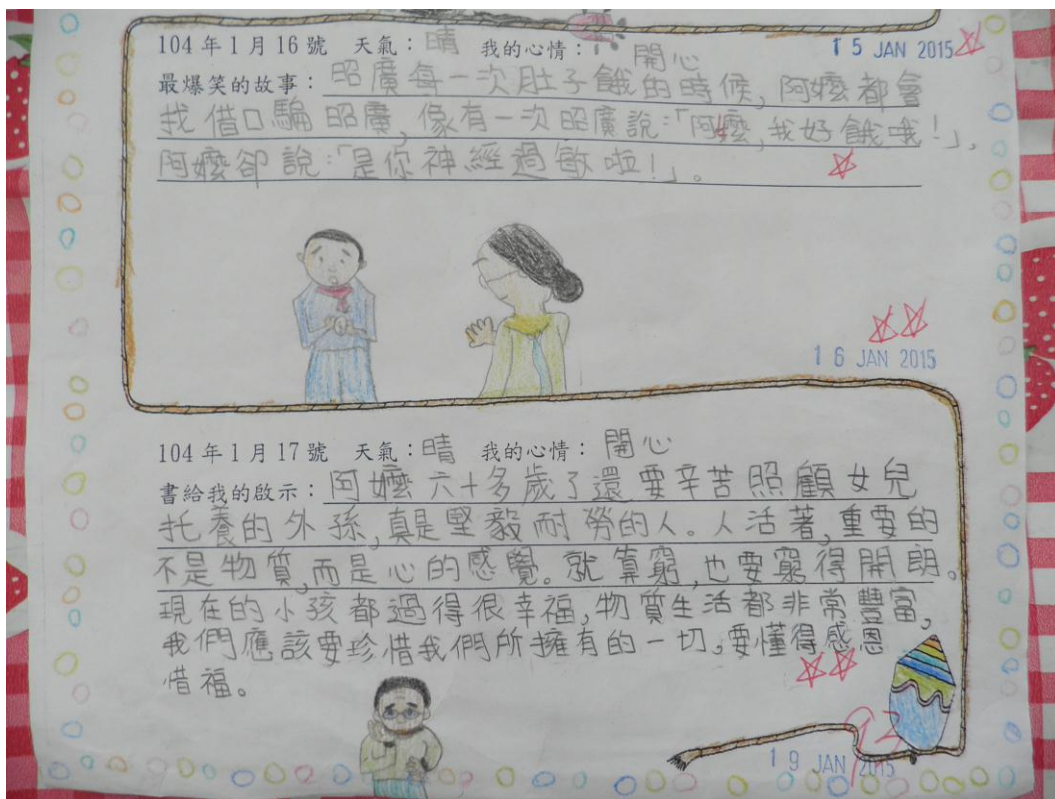 15 JAN 2015
104年1月16號 天氣：晴 我的心情：開心
最爆笑的故事：昭廣每一次肚子餓的時候，阿嬤都會
找借口騙昭廣，像有一次昭廣說：「阿嬤，我好餓哦！」，
阿嬤卻說：「是你神經過敏啦！」。
16 JAN 2015
104年1月17號 天氣：晴 我的心情：開心
書給我的啟示：阿嬤六十多歲了還要辛苦照顧女兒
托養的外孫，真是堅毅耐勞的人。人活著，重要的
不是物質，而是心的感覺。就算窮，也要窮得開朗。
現在的小孩都過得很幸福，物質生活都非常豐富，
我們應該要珍惜我們所擁有的一切，要懂得感恩
惜福。
92
19 JAN 2015